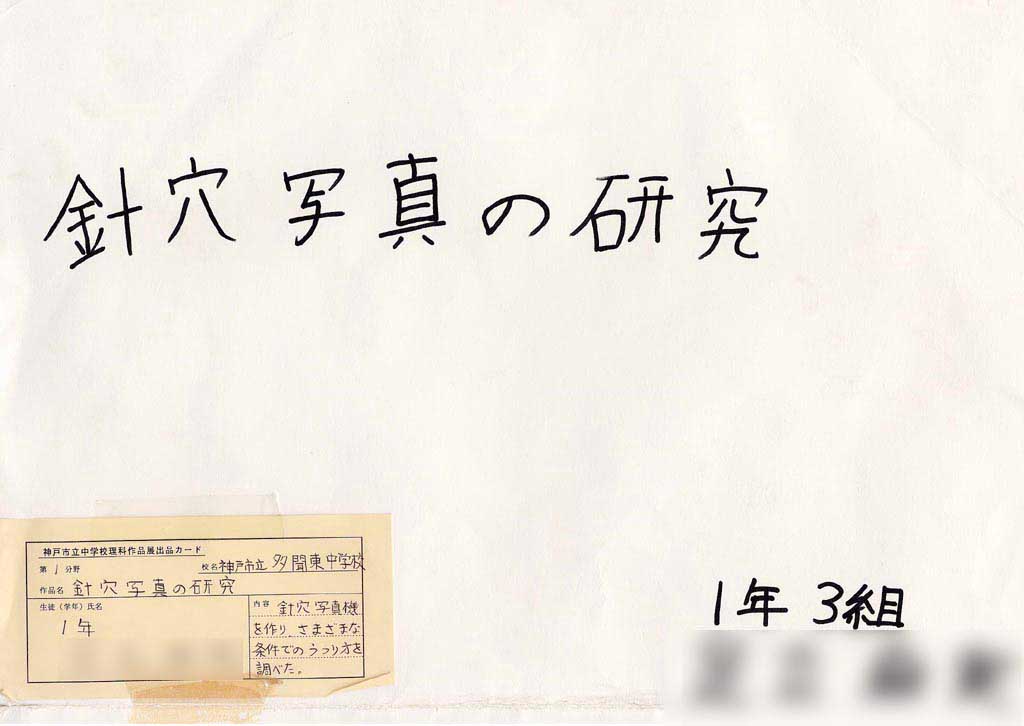 針穴写真の研究
神戸市立中学校理科作品展出品カード
第1分野
校名 神戸市立 多聞東中学校
作品名 針穴写真の研究
生徒(学年)氏名
1年
内容 針穴写真機
を作り、さまざまな
条件でのうつり方を
調べた。
1年 3組